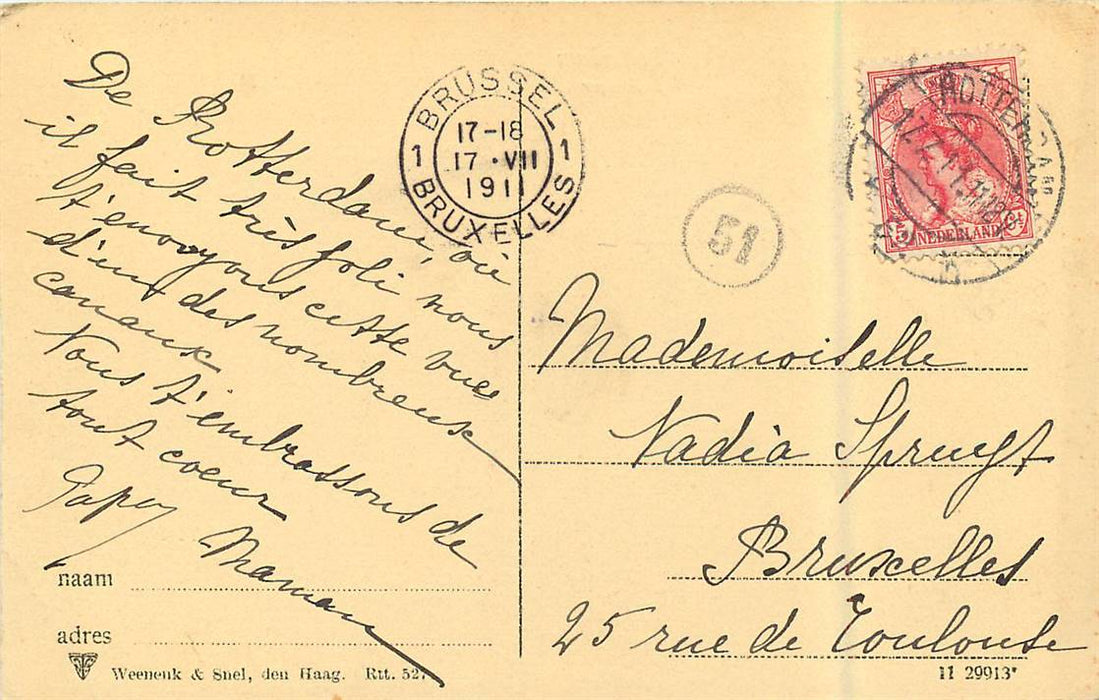 De Rotterdam, où
il fait très joli nous
t'envoyons cette vue
d'un des nombreux
canaux
Nous t'embrassons de
tout coeur
Papa
Maman
naam
adres
Weenenk & Snel, den Haag. Rtt. 527
BRUSSEL
1 17-18 1
17 · VII
1911
BRUXELLES
51
ROTTERDAM
NEDERLAND
5 Ct
Mademoiselle
Nadia Spruyt
Bruxelles
25 rue de Toulouse
11 29913*